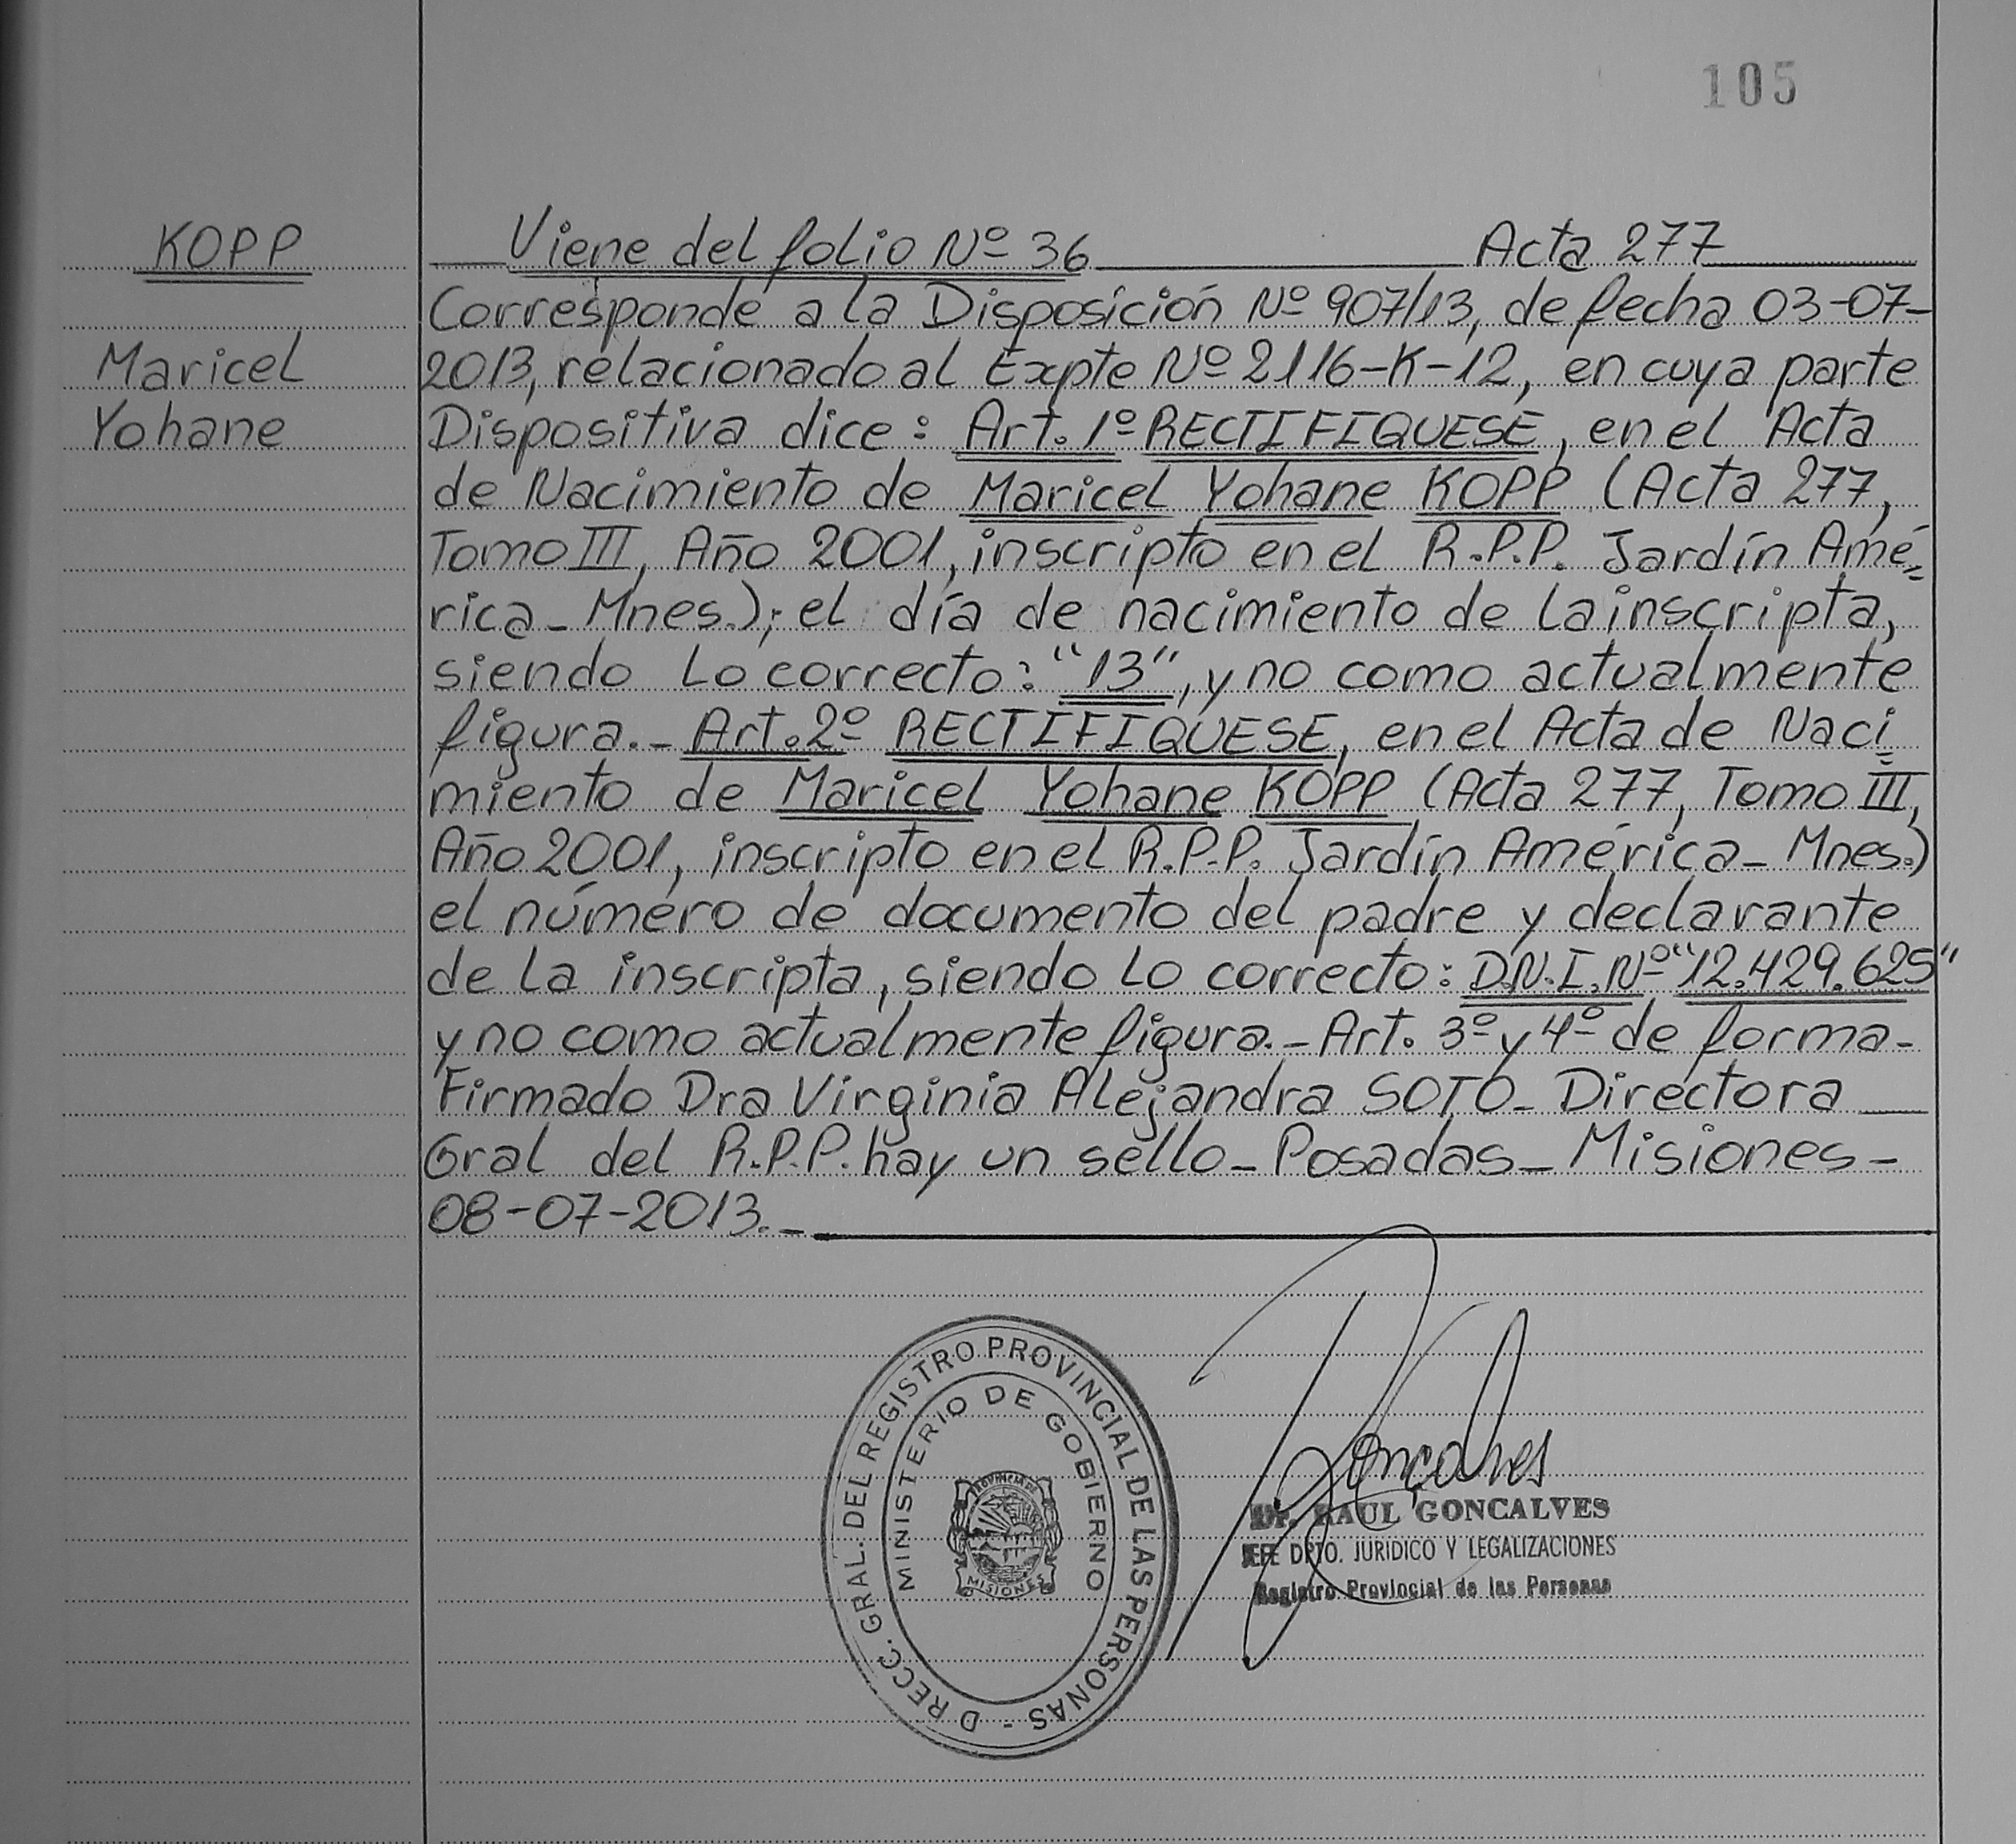 105
KOPP
Maricel
Yohane
Viene del folio Nº 36 Acta 277
Corresponde a la Disposición Nº 907/13, de fecha 03-07-
2013, relacionado al Expte Nº 2116-K-12, en cuya parte
Dispositiva dice: Art. 1º RECTIFIQUESE, en el Acta
de Nacimiento de Maricel Yohane KOPP (Acta 277,
Tomo III, Año 2001, inscripto en el R.P.P. Jardín Amé-
rica_ Mnes.); el día de nacimiento de la inscripta,
siendo lo correcto: "13", y no como actualmente
figura._ Art. 2º RECTIFIQUESE, en el Acta de Naci
miento de Maricel Yohane KOPP (Acta 277, Tomo III,
Año 2001, inscripto en el R.P.P. Jardín América_ Mnes.)
el número de documento del padre y declarante
de la inscripta, siendo lo correcto: D.N.I. Nº "12.429.625"
y no como actualmente figura._ Art. 3º y 4º de forma_
Firmado Dra Virginia Alejandra SOTO_ Directora
Gral del R.P.P. hay un sello_ Posadas_ Misiones_
08-07-2013._
D RECC. GRAL. DEL REGISTRO PROVINCIAL DE LAS PERSONAS -
MINISTERIO DE GOBIERNO
PROVINCIA DE
MISIONES
Gonçalves
Dr. RAUL GONCALVES
JEFE DPTO. JURIDICO Y LEGALIZACIONES
Registro Provincial de las Personas